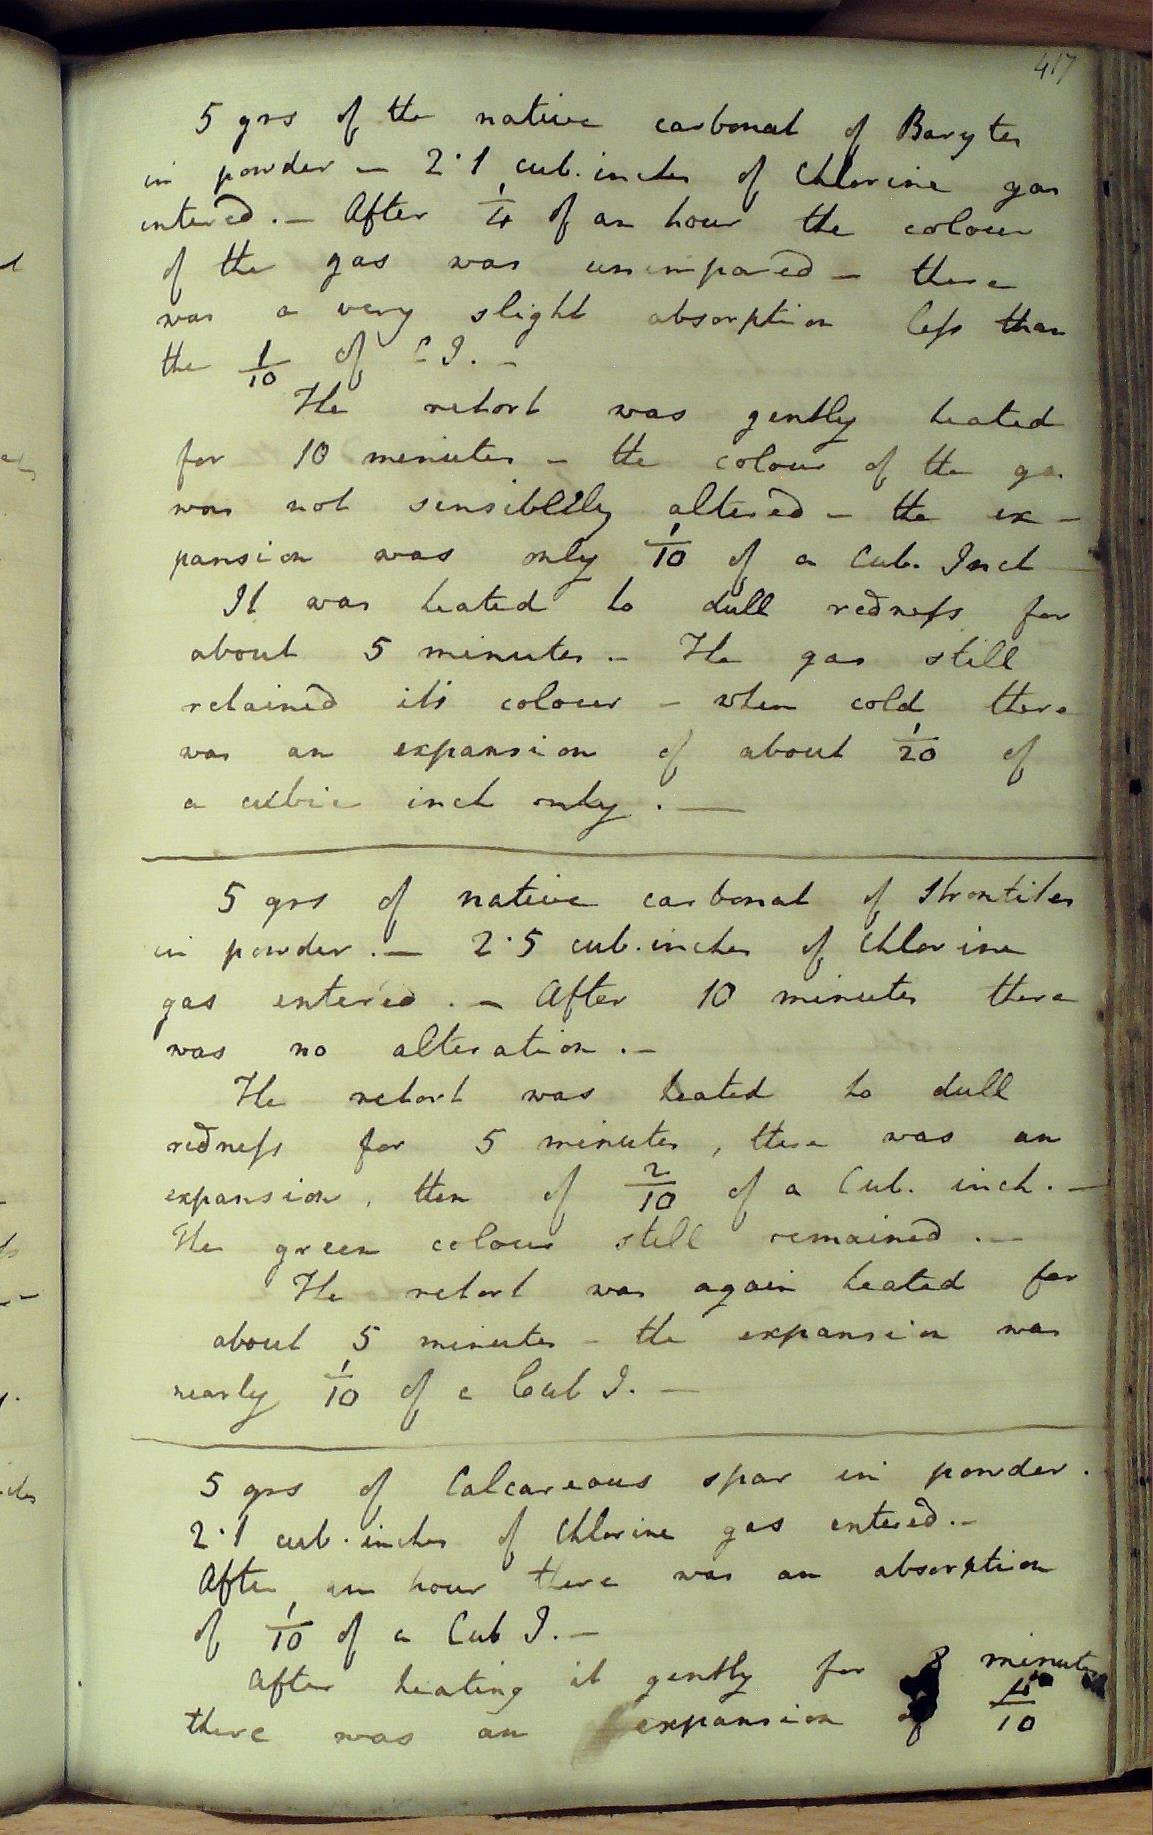 417
5 grs of the native carbonat of Barytes
in powder – 2·1 cub. inches of Chlorine gas
entered. – After 1/4 of an hour the colour
of the gas was unimpared – there
was a very slight absorption less than
the 1/10 of C I. –
The retort was gently heated
for 10 minutes – the colour of the gas
was not sensiblely altered – the ex –
pansion was only 1/10 of a Cub. Inch
It was heated to dull redness for
about 5 minutes – The gas still
retained its colour – when cold there
was an expansion of about 1/20 of
a cubic inch only. —
5 grs of native carbonat of Strontites
in powder. — 2·5 cub. inches of Chlorine
gas entered. – After 10 minutes there
was no alteration. –
The retort was heated to dull
redness for 5 minutes, there was an
expansion, then of 2/10 of a Cub. inch. –
The green colour still remained. –
The retort was again heated for
about 5 minutes – the expansion was
nearly 1/10 of a Cub I. –
5 grs of Calcareous spar in powder.
2·1 cub. inches of Chlorine gas entered. –
After an hour there was an absorption
of 1/10 of a Cub I. –
After heating it gently for 8 minutes
there was an expansion of 4/10